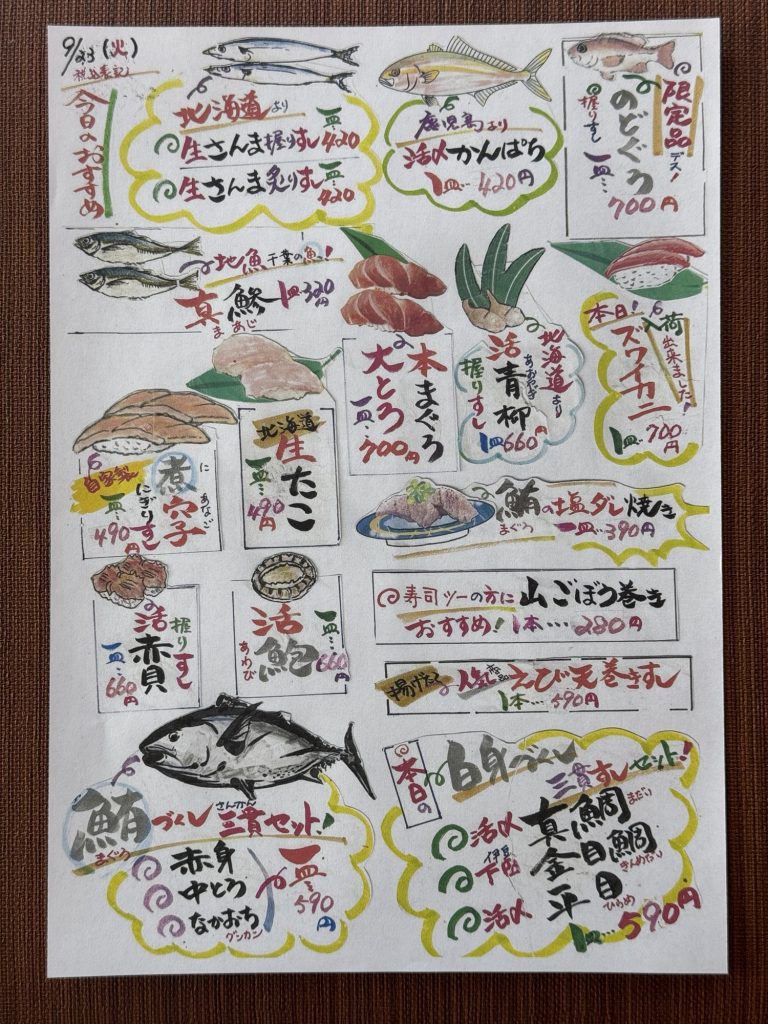 9/23(火)
税込表記
今日のおすすめ
北海道より
生さんま握りすし 一皿…420
生さんま炙りすし 一皿…420
鹿児島より
活〆かんぱち
1皿…420円
限定品デス!
のどぐろ
握りすし 一皿…
700円
地魚 千葉の魚!
真鯵 1皿・320円
まあじ
本まぐろ
大とろ
一皿…700円
北海道より
あおやぎ
活青柳
握りすし
1皿660円
本日!入荷出来ました!
ズワイカニ
1皿…700円
自家製
煮穴子
に あなご
にぎりすし
一皿…490円
北海道
生たこ
一皿…490円
鮪の塩ダレ焼き
まぐろ 一皿…390円
寿司ツーの方に 山ごぼう巻き
おすすめ! 1本…280円
揚げたて 人気商品 えび天巻きすし
1本…590円
握りすし
活赤貝
一皿…660円
活鮑
あわび
一皿…660円
鮪づくし 三貫セット!
まぐろ さんかん
赤身
中とろ
なかおち
グンカン
一皿…590円
本日の 白身づくし
三貫すしセット!
活〆 真鯛 まだい
伊豆下田 金目鯛 きんめだい
活〆 平目 ひらめ
1皿…590円